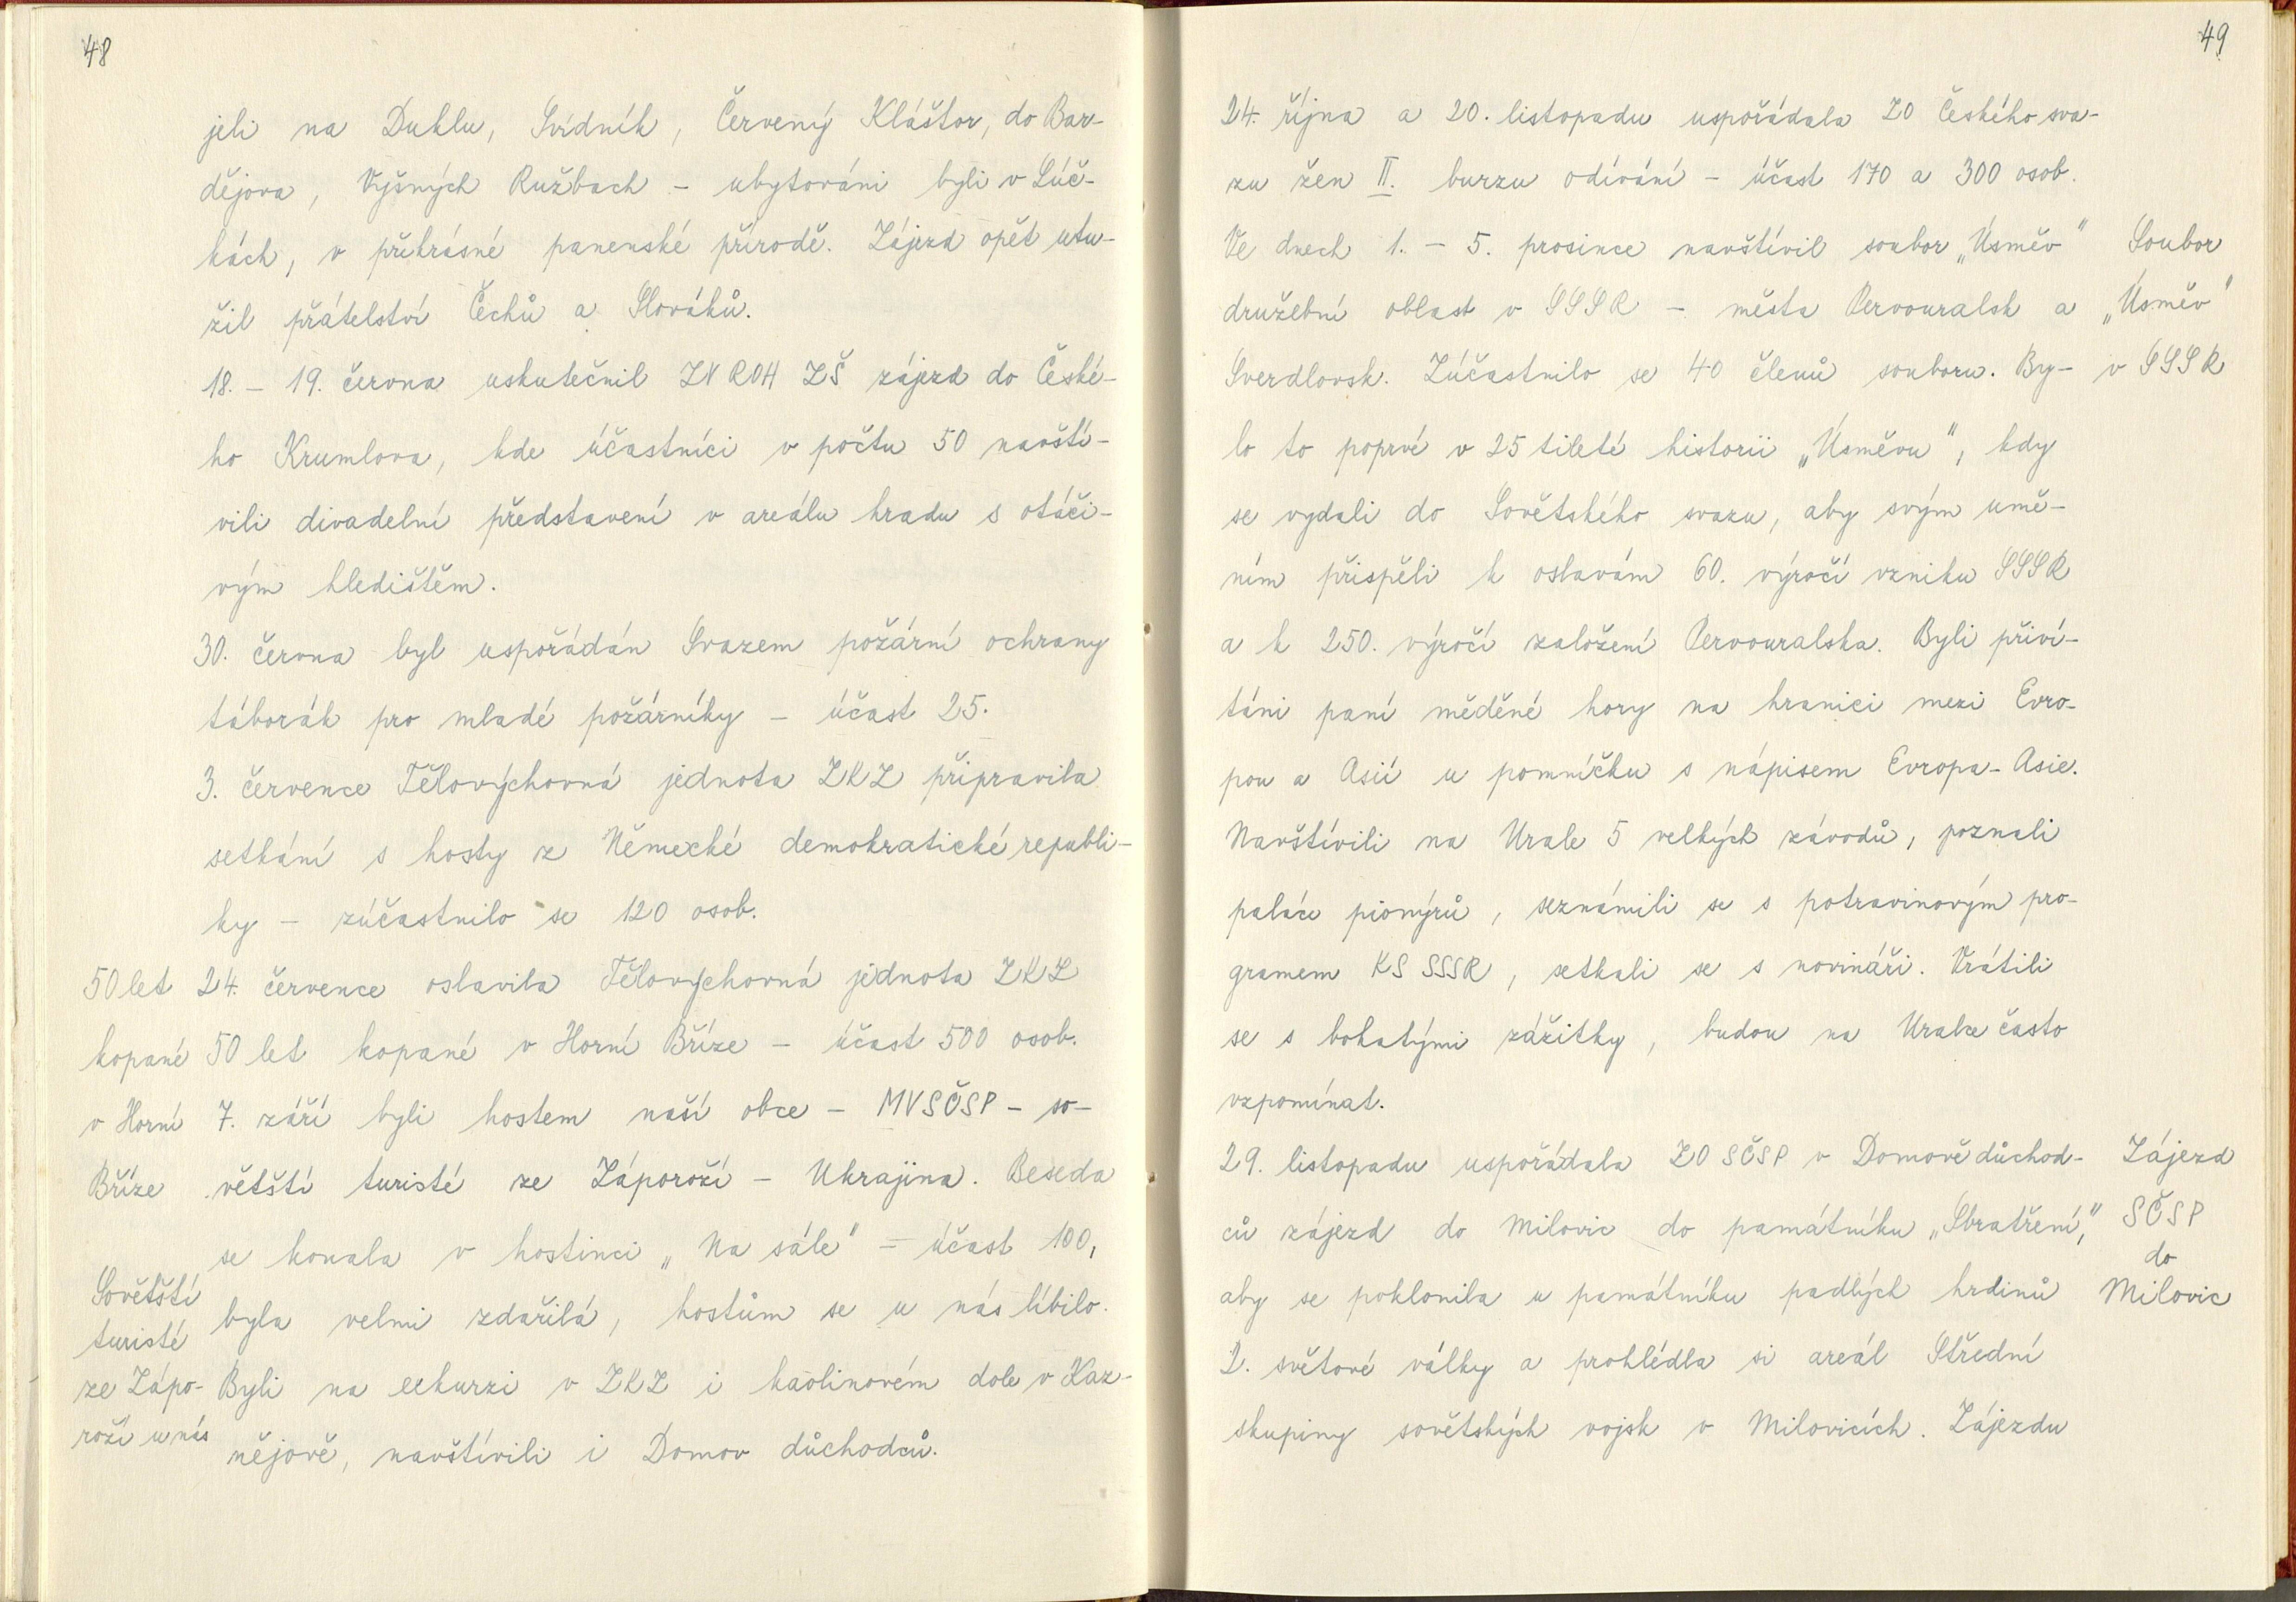 48
jeli na Duklu, Svidník, Červený Kláštor, do Bar-
dějova, Vyšných Ružbach – ubytováni byli v Lúč-
kách, v překrásné panenské přírodě. Zájezd opět utu-
žil přátelství Čechů a Slováků.
18. – 19. června uskutečnil ZV ROH ZŠ zájezd do České-
ho Krumlova, kde účastníci v počtu 50 navští-
vili divadelní představení v areálu hradu s otáči-
vým hledištěm.
30. června byl uspořádán Svazem požární ochrany
táborák pro mladé požárníky – účast 25.
3. července Tělovýchovná jednota ZKZ připravila
setkání s hosty z Německé demokratické republi-
ky – zúčastnilo se 120 osob.
50 let
kopané
v Horní
Bříze
24. července oslavila Tělovychovná jednota ZKZ
50 let kopané v Horní Bříze – účast 500 osob.
7. září byli hostem naší obce – MVSČSP – so-
větští turisté ze Záporoží – Ukrajina. Beseda
se konala v hostinci „Na sále" – účast 100,
byla velmi zdařilá, hostům se u nás líbilo.
Byli na exkurzi v ZKZ i kaolinovém dole v Kaz-
nějově, navštívili i Domov důchodců.
Sovětští
turisté
ze Zápo-
roží u nás
49
24. října a 20. listopadu uspořádala ZO Českého sva-
zu žen II. burzu odívání – účast 170 a 300 osob.
Ve dnech 1. – 5. prosince navštívil soubor „Úsměv"
družební oblast v SSSR – města Pervouralsk a
Sverdlovsk. Zúčastnilo se 40 členů souboru. By-
lo to poprvé v 25 tileté historii „Úsměvu", kdy
se vydali do Sovětského svazu, aby svým umě-
ním přispěli k oslavám 60. výročí vzniku SSSR
a k 250. výročí založení Pervouralska. Byli přiví-
táni paní měděné hory na hranici mezi Evro-
pou a Asií u pomníčku s nápisem Evropa – Asie.
Navštívili na Urale 5 velkých závodů, poznali
paláce pionýrů, seznámili se s potravinovým pro-
gramem KS SSSR, setkali se s novináři. Vrátili
se s bohatými zážitky, budou na Urale často
vzpomínat.
Soubor
„Úsměv"
v SSSR
29. listopadu uspořádala ZO SČSP v Domově důchod-
ců zájezd do Milovic do památníku „Sbratření,"
aby se poklonila u památníku padlých hrdinů
2. světové války a prohlédla si areál Střední
skupiny sovětských vojsk v Milovicích. Zájezdu
Zájezd
SČSP
do
Milovic